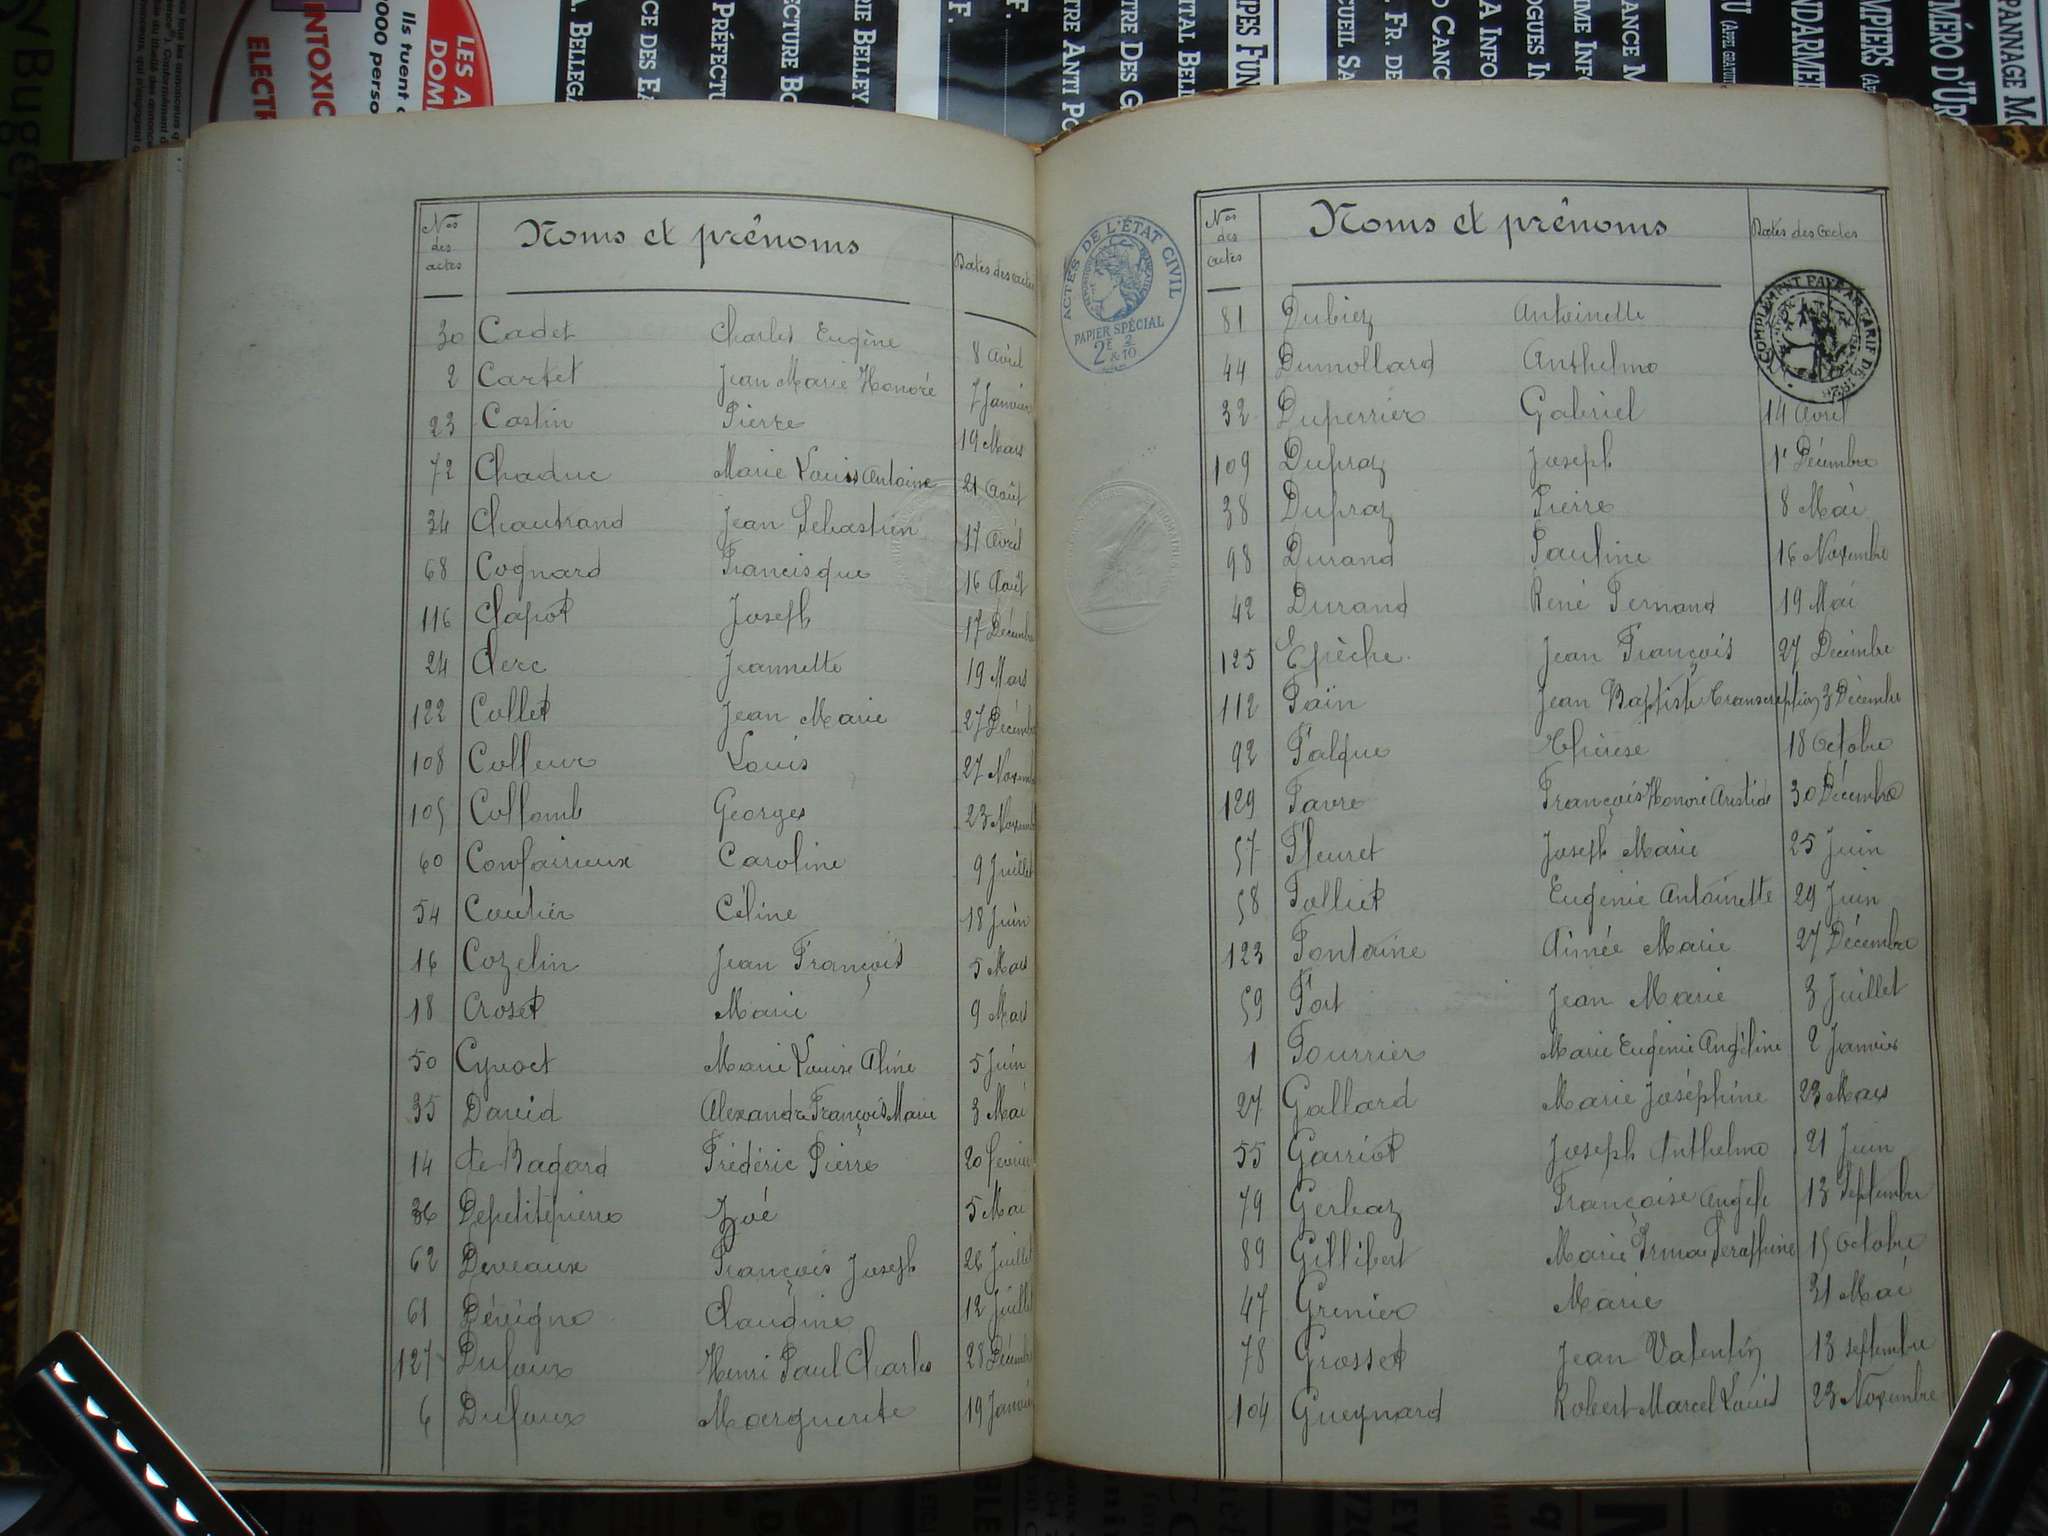 Bugey
LES A
DOM
Ils tuent
000 perso
INTOXIC
ELECTR
A. BELLEGA
CE DES EA
PRÉFECTU
ECTURE BO
RIE BELLEY
F.
F.
TRE ANTI PO
TRE DES G
ITAL BELL
PES FUN
CUEIL SA
. FR. DE
D CANC
A INFO
OGUES IN
ME INFO
ANCE M
U (APPEL GRATUIT
NDARMER
MPIERS
MÉRO D'URG
PANNAGE MO
Nos des actes
Noms et prénoms
Dates des actes
30 Cadet Charles Eugène 8 Avril
2 Cartet Jean Marie Honoré 7 Janvier
23 Castin Pierre 19 Mars
72 Chaduc Marie Louis Antoine 21 Août
34 Chautrand Jean Sébastien 17 Avril
68 Cognard Francisque 16 Août
116 Clapot Joseph 17 Décembre
24 Clerc Jeannette 19 Mars
122 Collet Jean Marie 27 Décembre
108 Colleur Louis 27 Novemb
105 Collomb Georges 23 Novemb
60 Confavreux Caroline 9 Juillet
54 Coutier Céline 18 Juin
16 Cozelin Jean François 5 Mars
18 Croset Marie 9 Mars
50 Cyvoct Marie Louise Aline 5 Juin
35 David Alexandre François Marie 3 Mai
14 de Bagard Frédéric Pierre 20 février
36 Depetitepierre Zoé 5 Mai
62 Deveaux François Joseph 26 Juillet
61 Dévigne Claudine 12 Juillet
127 Dufoux Henri Paul Charles 28 Décembre
6 Dufoux Marguerite 19 Janvier
ACTES DE L'ÉTAT CIVIL
PAPIER SPÉCIAL
2E 2
& 10
Nos des actes
Noms et prénoms
Dates des Actes
COMPLÉMENT PAYÉ AN TARIF DE 192
81 Dubiez Antoinette
44 Dumollard Anthelme
32 Duperrier Gabriel 14 Avril
109 Dupraz Joseph 1r Décembre
38 Dupraz Pierre 8 Mai
98 Durand Pauline 16 Novembre
42 Durand René Fernand 19 Mai
125 Epèche Jean François 27 Décembre
112 Faïn Jean Baptiste transcription 3 Décembre
92 Falque Thérèse 18 Octobre
129 Favre François Honoré Aristide 30 Décembre
57 Fleuret Joseph Marie 25 Juin
58 Folliet Eugénie Antoinette 29 Juin
123 Fontaine Aimée Marie 27 Décembre
59 Fort Jean Marie 3 Juillet
1 Fourrier Marie Eugénie Angéline 2 Janvier
27 Gallard Marie Joséphine 23 Mars
55 Garriot Joseph Anthelme 21 Juin
79 Gerbaz Françoise Angèle 13 Septembre
89 Gillibert Marie Irma Séraphine 15 Octobre
47 Grenier Marie 31 Mai
78 Grosset Jean Valentin 13 septembre
104 Gueynard Robert Marcel Louis 23 Novembre